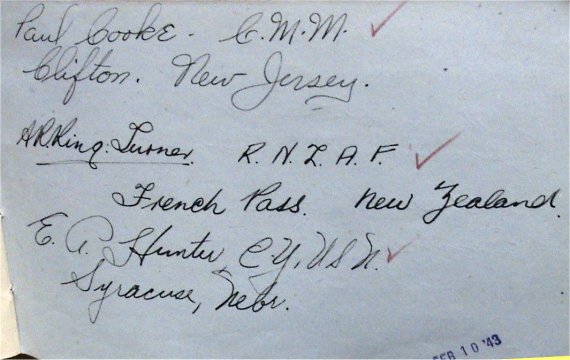 Paul Cooke. C.M.M.
Clifton. New Jersey.
A.R. King. Turner. R. N. Z. A. F.
French Pass. New Zealand.
E. P. Hunter, CY, USN.
Syracuse, Nebr.
FEB 10 '43